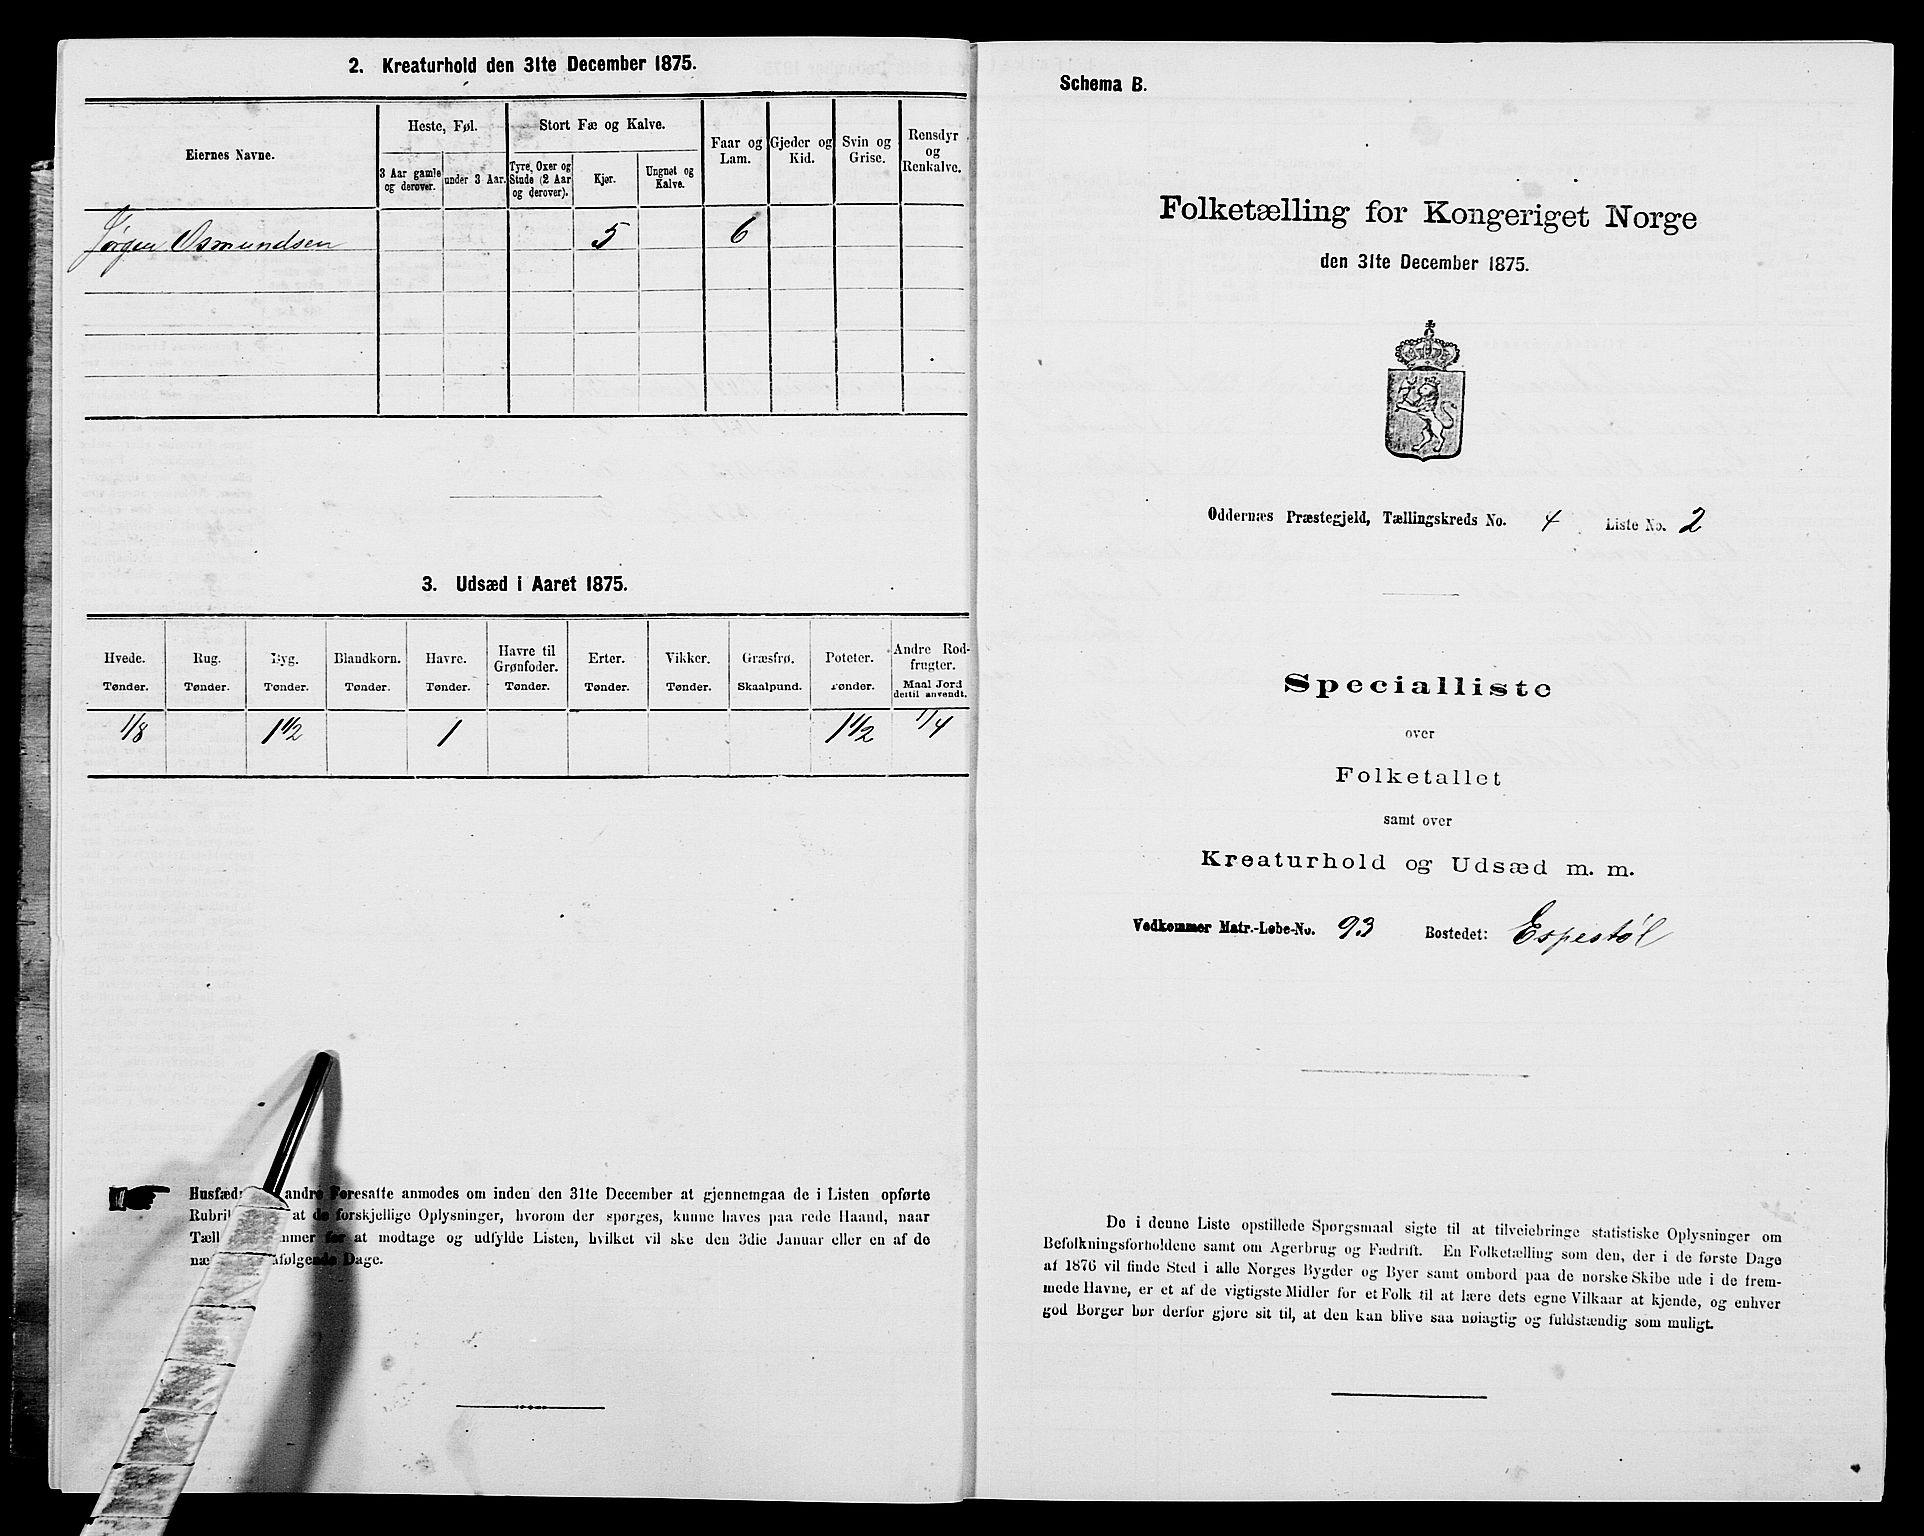 2. Kreaturhold den 31te December 1875.
Eiernes Navne.
Heste, Føl.
3 Aar gamle og derover.
under 3 Aar.
Stort Fæ og Kalve.
Tyre, Oxer og Stude (2 Aar og derover).
Kjør.
Ungnøt og Kalve.
Faar og Lam.
Gjeder og Kid.
Svin og Grise.
Rensdyr og Renkalve.
Jørgen Osmundsen 5 6
3. Udsæd i Aaret 1875.
Hvede. Rug. Byg. Blandkorn. Havre. Havre til Grønfoder. Erter. Vikker. Græsfrø. Poteter. Andre Rodfrugter.
Tønder. Tønder. Tønder. Tønder. Tønder. Tønder. Tønder. Tønder. Skaalpund. Tønder. Maal Jord dertil anvendt.
1/8 1 1/2 1 1 1/2 1/4
Husfæd andre Foresatte anmodes om inden den 31te December at gjennemgaa de i Listen opførte
Rubri at de forskjellige Oplysninger, hvorom der spørges, kunne haves paa rede Haand, naar
Tæll mmer for at modtage og udfylde Listen, hvilket vil ske den 3die Januar eller en af de
næ afølgende Dage.
Schema B.
Folketælling for Kongeriget Norge
den 31te December 1875.
Oddernæs Præstegjeld, Tællingskreds No. 4 Liste No. 2
Specialliste
over
Folketallet
samt over
Kreaturhold og Udsæd m. m.
Vedkommer Matr.-Løbe-No. 93 Bostedet: Espestøl
De i denne Liste opstillede Spørgsmaal sigte til at tilveiebringe statistiske Oplysninger om
Befolkningsforholdene samt om Agerbrug og Fædrift. En Folketælling som den, der i de første Dage
af 1876 vil finde Sted i alle Norges Bygder og Byer samt ombord paa de norske Skibe ude i de frem-
mede Havne, er et af de vigtigste Midler for et Folk til at lære dets egne Vilkaar at kjende, og enhver
god Borger bør derfor gjøre sit til, at den kan blive saa nøiagtig og fuldstændig som muligt.